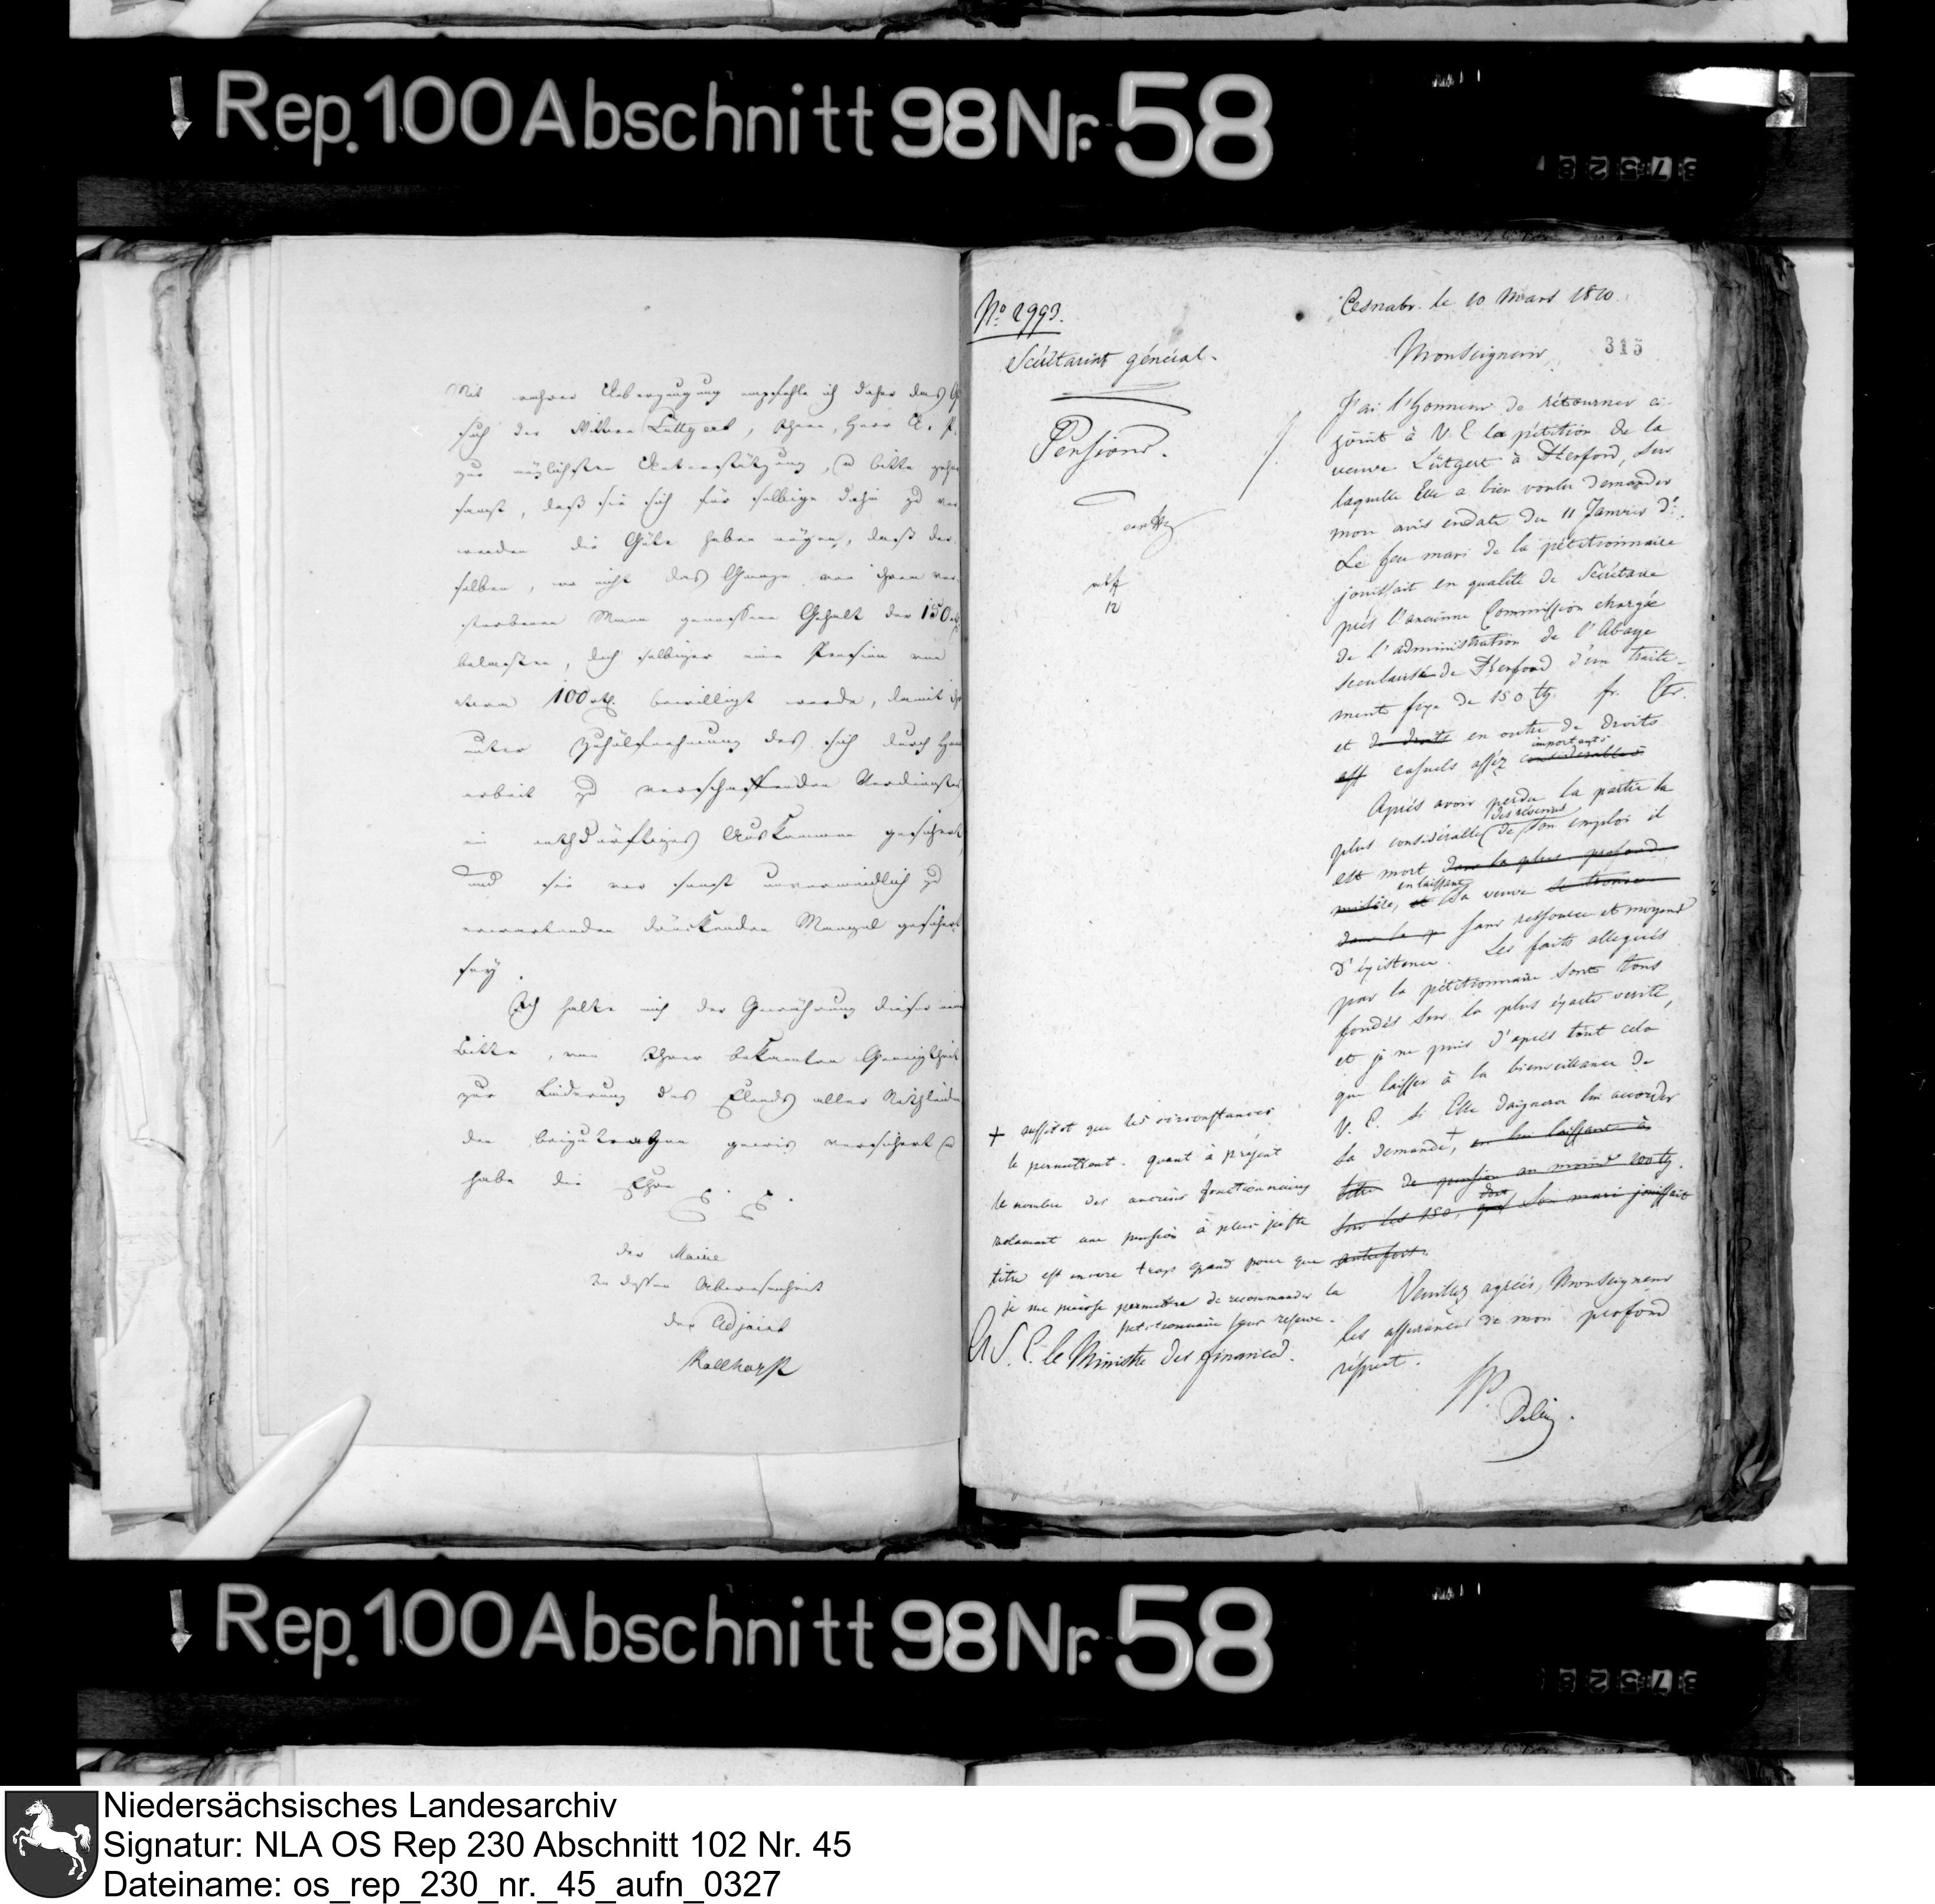 Rep. 100 Abschnitt 98 Nr. 58
Mit wahrer Ueberzeugung empfehle ich daher das
such der Wittwe Lüttgert, Ihnen, Herr
zur möglichsten Unterstützung, u bitte
samst, daß sie sich für selbige dahin zu ver
wenden die Güte haben mögen, daß der
selben, wo nicht das Ganze von ihrem ver
storbenen Mann genossene Gehalt der 150
belassen, doch selbiger eine Pension von
etwa 100 rth. bewilligt werde, damit ihr
unter Zuhülfnehmung des sich durch
arbeit zu verschaffenden Verdienstes
ein nothdürftiges Auskommen gesichert
und sie vor sonst unvermeidlich zu
erwartenden drückenden Mangel gesichert
sey.
Ich halte mich der Gewährung dieser
Bitte, von Ihrer bekannten Geneigtheit
zur Linderung des Elends aller Nothleiden
den beizutragen gewis versichert u
habe die Ehre
der Maire
In dessen Abwesenheit
der Adjoint
N° 2993.
Secrétariat général.
Pensions.
12
Osnabr. le 10 Mars 1810.
315
Monseigneur,
J'ai l'honneur de rétourner ci-
joint à V. E. la pétition de la
veuve Lütgert à Herford, sur
laquelle Elle a bien voulu demander
mon avis en date du 11 Janvier d:
Le feu mari de la pétitionnaire
jouissait en qualité de Secrétaire
près l'ancienne Commission chargée
de l'administration de l'Abaye
secularisée de Herford d'un traite-
ment fixe de 150 fr.
et de droits en outre de droits
casuels assez considerables importants
Après avoir perdu la partie la
plus considérable des révenus de son emploi il
est mort dans la plus profonde
misère, et en laissant sa veuve se trouve
dans la sans ressource et moyens
d'existence. Les faits allegués
par la pétitionnaire sont tous
fondés sur la plus exacte verité,
et je ne puis d'après tout cela
que laisser à la bienveillance de
V. E. si Elle daignera lui accorder
sa demande, + en lui laissant à
titre de pension au moins 100
sur les 150, dont son mari jouissait
autrefois.
+ aussitot que les circonstances
le permettent. quant à présent
le nombre des anciens fonctionnaires
reclamant une pension à plus juste
titre est encore trop grand pour que
je me puisse permettre de recommander la
petitionnaire sans reserve.
Veuillez agréer, Monseigneur
les assurances de mon profond
réspect.
A S. E. le Ministre des finances.
Rep. 100 Abschnitt 98 Nr. 58
Niedersächsisches Landesarchiv
Signatur: NLA OS Rep 230 Abschnitt 102 Nr. 45
Dateiname: os_rep_230_nr._45_aufn_0327